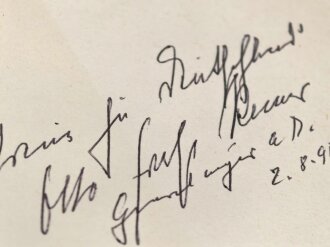 für Deutschland
Otto Ernst Remer
Generalmajor a. D.
2.8.9